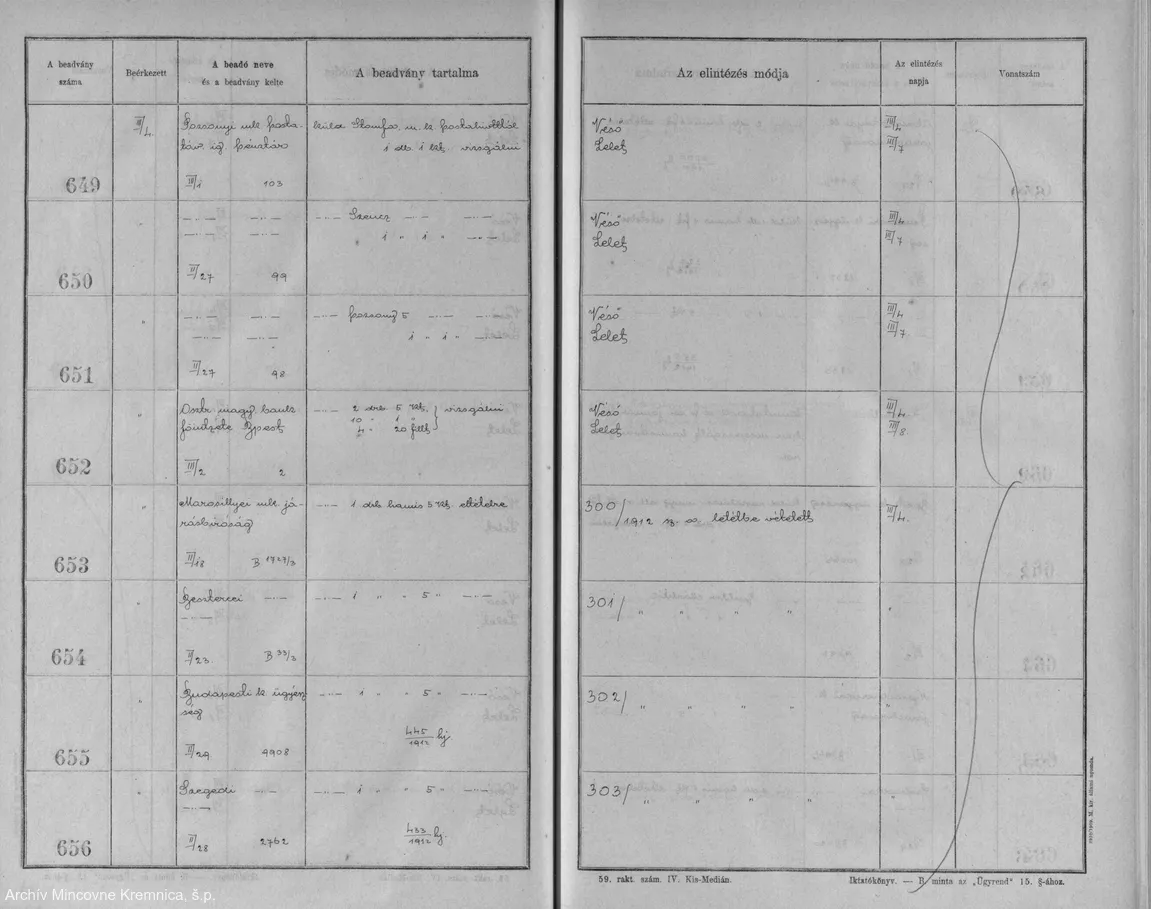 A beadvány száma
Beérkezett
A beadó neve és a beadvány kelte
A beadvány tartalma
Az elintézés módja
Az elintézés napja
Vonatszám
III/4.
Pozsonyi mk. posta-
táv. ig. pénztár
küld Stomfa m. k. postahivattól
1 drb. 1 kr. vizsgálni
Véső
Lelet
III/4
III/7
649
III/1 103
—〃— —〃—
—〃— Szencz —〃— —〃—
—〃— —〃—
1 〃 1 〃 —〃—
Véső
Lelet
III/4
III/7
650
II/27 99
〃
—〃— —〃—
—〃— pozsony 5 —〃— —〃—
—〃— —〃—
1 〃 1 〃 —〃—
Véső
Lelet
III/4
III/7
651
II/27 98
〃
Osztr. magy. bank
főintézete Bpest
—〃— 2 drb. 5 kr. vizsgálni
10 〃 1 〃
4 〃 20 fill.
Véső
Lelet
III/4
III/8
652
III/2 2
〃
Marosillyei mk. já-
rásbiróság
—〃— 1 drb hamis 5 kr.
300/1912 sz. a. letétbe vétetett
III/4.
653
II/18 B 1727/3
〃
Besztercei —〃—
—〃— 1 〃 〃 5 〃 —〃—
—〃—
301/ 〃 〃 〃 〃
〃
654
II/23 B 33/3
〃
Budapesti k. ügyész
ség
—〃— 1 〃 〃 5 〃 —〃—
302/ 〃 〃 〃 〃
〃
445/1912 bj
655
II/29 4908
Szegedi —〃—
—〃— 1 〃 〃 5 〃 —〃—
—〃—
303/ 〃 〃 〃 〃
433/1912 bj.
656
II/28 2762
59. rakt. szám. IV. Kis-Medián.
Iktatókönyv. — B minta az „Ügyrend" 15. §-ához.
M. kir. állami nyomda.
Archív Mincovne Kremnica, š.p.